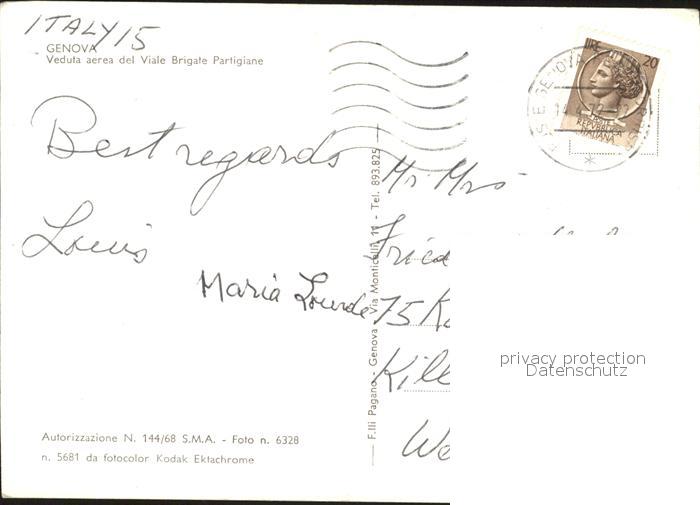 ITALY/5
GENOVA
Veduta aerea del Viale Brigate Partigiane
LIRE 20
POSTE
REPUBBLICA
ITALIANA
Best regards
Louis
Maria Lourdes
Mr Mrs
Fried
75 K
Kill
We
F.lli Pagano - Genova - Via Monticelli, 11 - Tel. 893.825
privacy protection
Datenschutz
Autorizzazione N. 144/68 S.M.A. - Foto n. 6328
n. 5681 da fotocolor Kodak Ektachrome